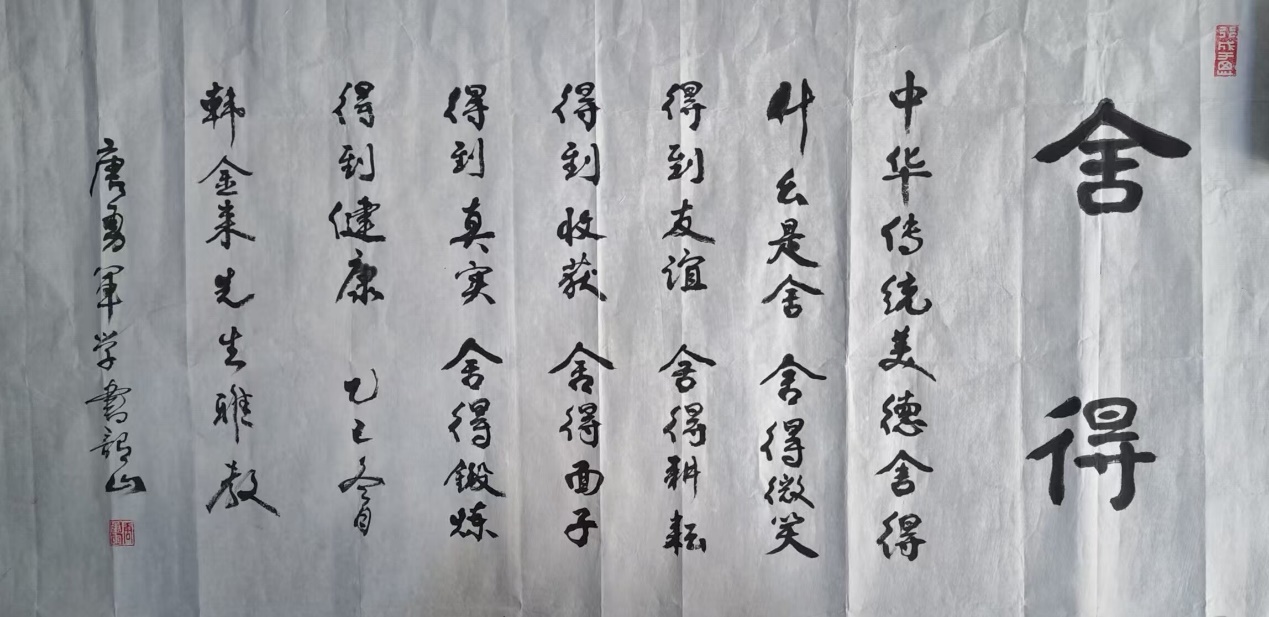 舍得
中华传统美德舍得
什么是舍 舍得微笑
得到友谊 舍得耕耘
得到收获 舍得面子
得到真实 舍得锻炼
得到健康 乙巳冬月
韩金来先生雅教
唐勇军学书韶山